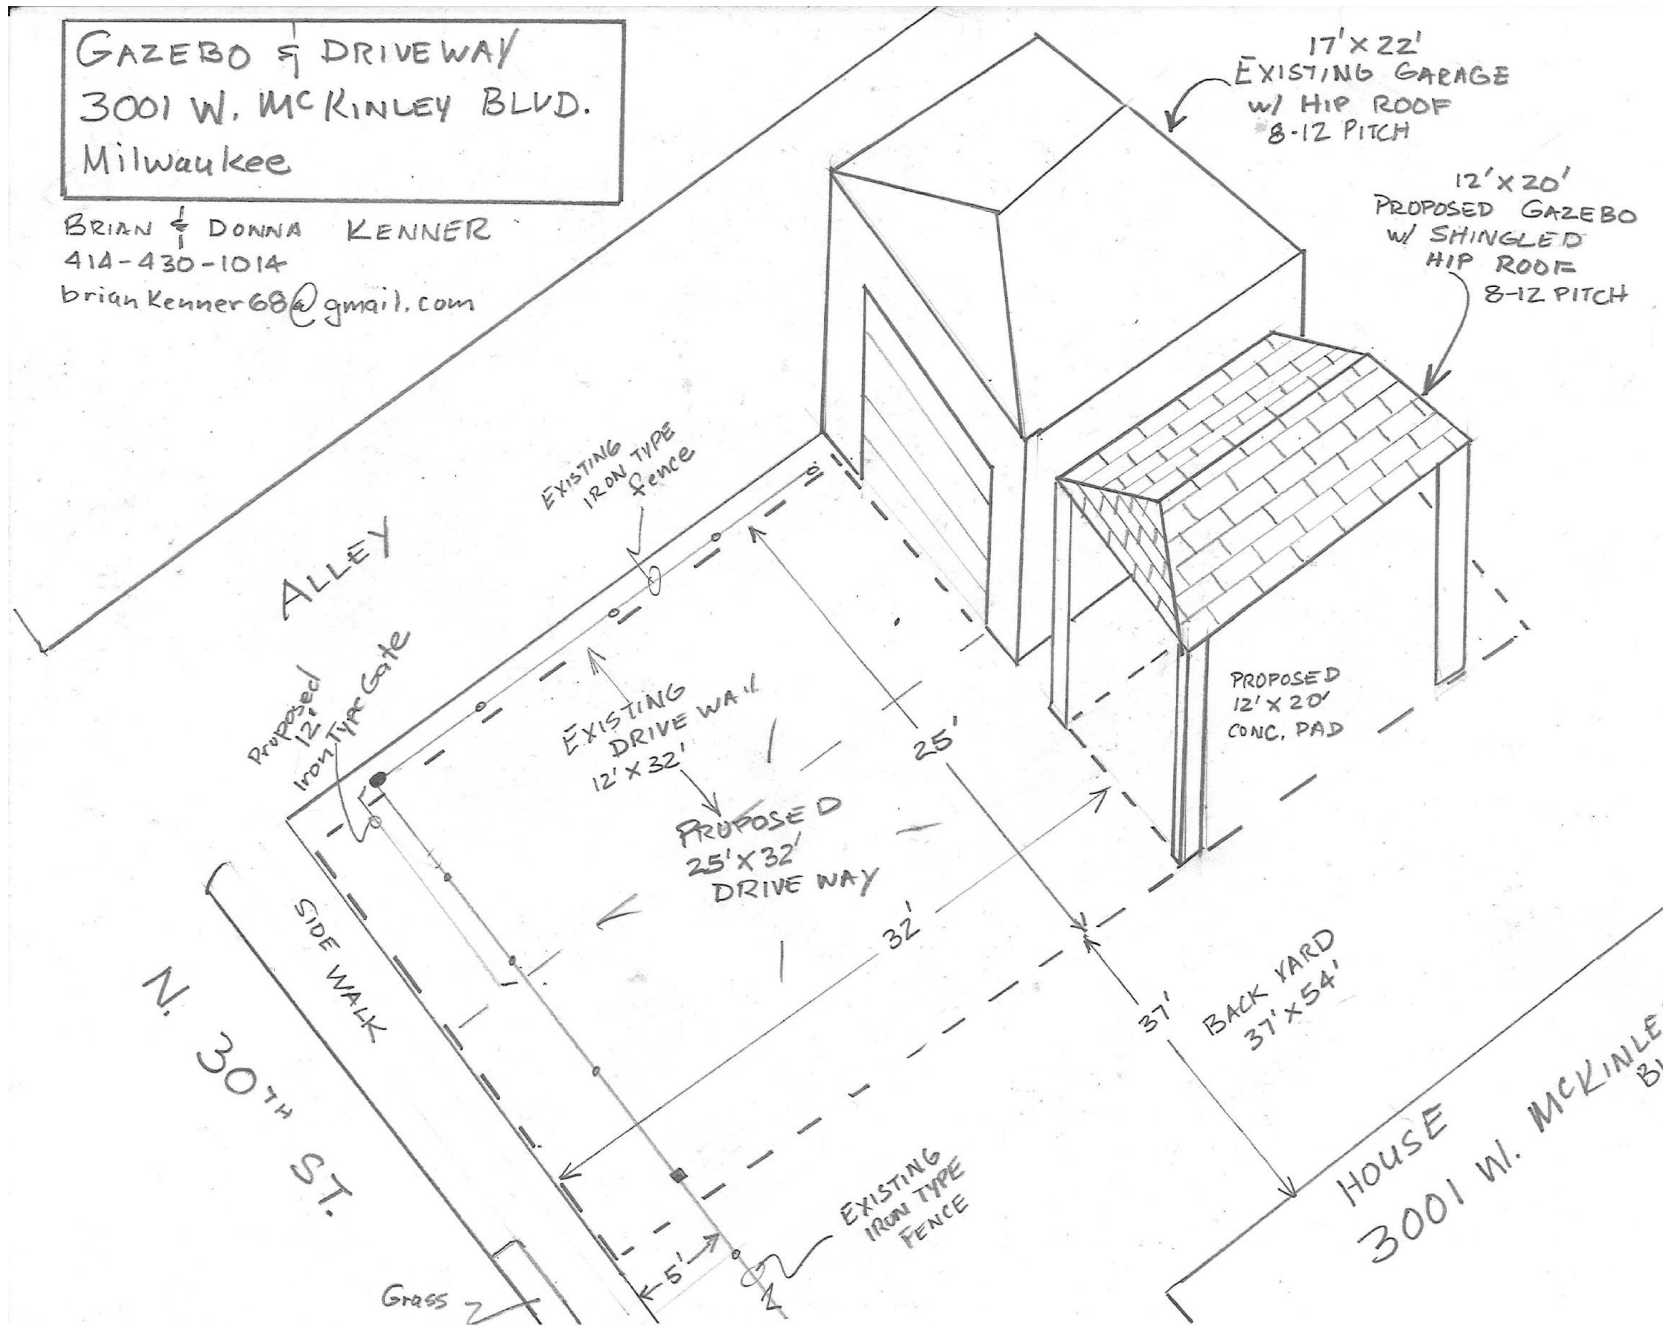 GAZEBO & DRIVEWAY
3001 W. McKINLEY BLVD.
Milwaukee
BRIAN & DONNA KENNER
414-430-1014
briankenner68@gmail.com
17' X 22'
EXISTING GARAGE
w/ HIP ROOF
8-12 PITCH
12' X 20'
PROPOSED GAZEBO
w/ SHINGLED
HIP ROOF
8-12 PITCH
EXISTING
IRON TYPE
fence
ALLEY
Proposed
12'
Iron Type Gate
EXISTING
DRIVE WAY
12' X 32'
PROPOSED
25' X 32'
DRIVE WAY
25'
32'
PROPOSED
12' X 20'
CONC. PAD
SIDE WALK
N. 30TH ST.
37'
BACK YARD
37' X 54'
HOUSE
3001 W. McKINLE
EXISTING
IRON TYPE
FENCE
5'
Grass